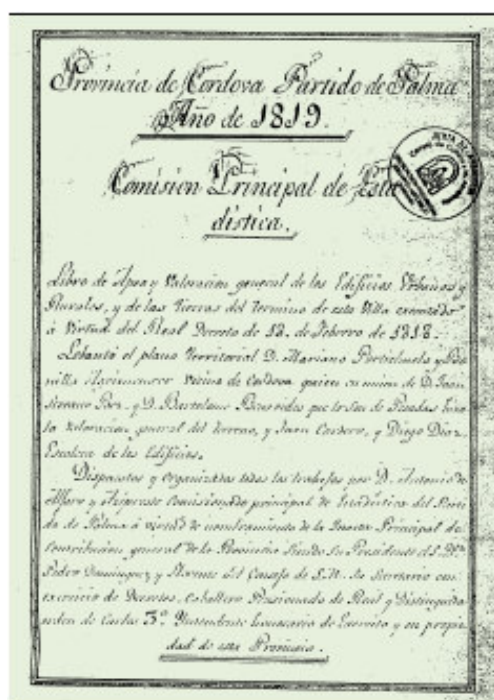 Provincia de Cordova Partido de Palma
Año de 1819.
Comision Principal de Esta
distica.
Libro de Apeo y Valoracion general de los Edificios Urbanos y
Rurales, y de las Tierras del Termino de esta Villa executado
á Virtud del Real Decreto de 18. de Febrero de 1818.
Lebantó el plano Territorial D. Mariano
Agrimensor Vecino de Cordova quien en union de D. Juan
Serrano y D. Bartolome que lo son de Posadas
la Valoracion general del terreno, y Juan Cordero, y Diego Diaz
de los Edificios.
Dispuestos y Organizados todos los trabajos por D. Antonio de
Alfaro y Comisionado principal de Estadistica del Parti
do de Palma á virtud de nombramiento de la Junta Principal de
Contribucion general de la Provincia siendo su Presidente el S. Dn.
Pedro Dominguez y Llorente del Consejo de S.M. su Secretario con
exercicio de Decretos, Caballero Pensionado de Real y Distinguida
orden de Carlos 3º. Yntendente de Exercito y en propie
dad de esta Provincia.